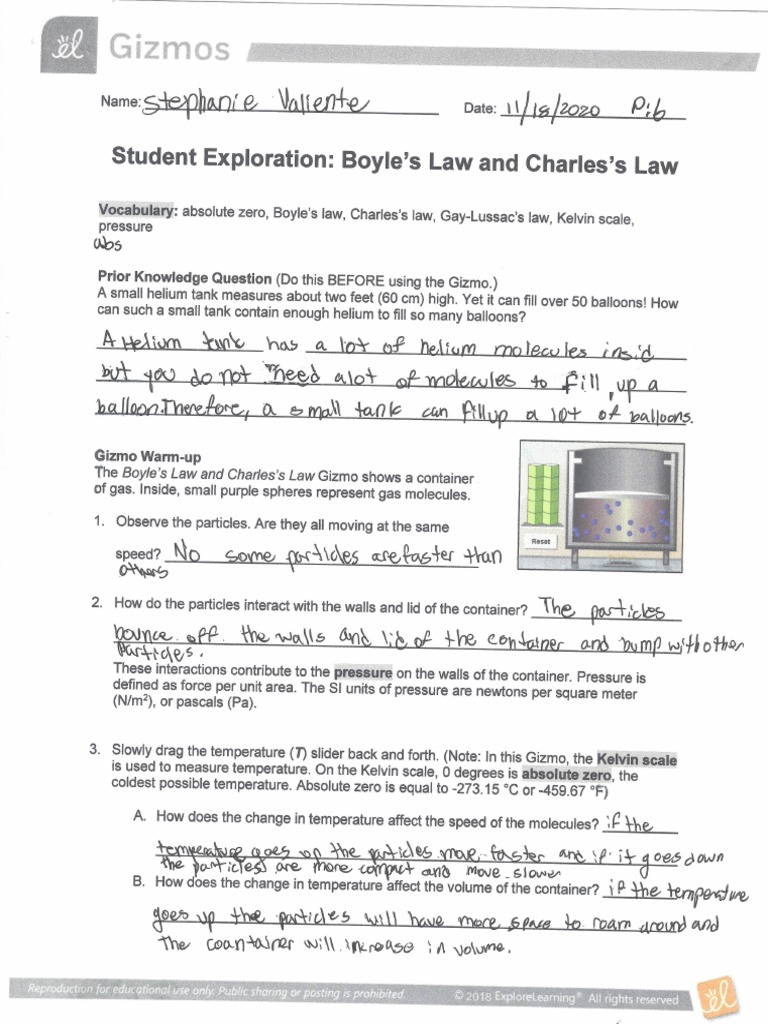 el Gizmos
Name: Stephanie Valiente Date: 11/18/2020 P:6
Student Exploration: Boyle's Law and Charles's Law
Vocabulary: absolute zero, Boyle's law, Charles's law, Gay-Lussac's law, Kelvin scale,
pressure
abs
Prior Knowledge Question (Do this BEFORE using the Gizmo.)
A small helium tank measures about two feet (60 cm) high. Yet it can fill over 50 balloons! How
can such a small tank contain enough helium to fill so many balloons?
A Helium tank has a lot of helium molecules insid
but you do not need alot of molecules to fill, up a
balloon.Therefore, a small tank can fillup a lot of balloons.
Gizmo Warm-up
The Boyle's Law and Charles's Law Gizmo shows a container
of gas. Inside, small purple spheres represent gas molecules.
Reset
1. Observe the particles. Are they all moving at the same
speed? No some particles are faster than
others
2. How do the particles interact with the walls and lid of the container? The particles
bounce off the walls and lid of the container and bump with other
Particles.
These interactions contribute to the pressure on the walls of the container. Pressure is
defined as force per unit area. The SI units of pressure are newtons per square meter
(N/m²), or pascals (Pa).
3. Slowly drag the temperature (T) slider back and forth. (Note: In this Gizmo, the Kelvin scale
is used to measure temperature. On the Kelvin scale, 0 degrees is absolute zero, the
coldest possible temperature. Absolute zero is equal to -273.15 °C or -459.67 °F)
A. How does the change in temperature affect the speed of the molecules? if the
temperature goes up the particles move faster and if it goes down
the particles are more compact and move slower
B. How does the change in temperature affect the volume of the container? if the temperature
goes up the particles will have more space to roam around and
the coantainer will increase in volume.
Reproduction for educational use only. Public sharing or posting is prohibited. © 2018 ExploreLearning® All rights reserved
el